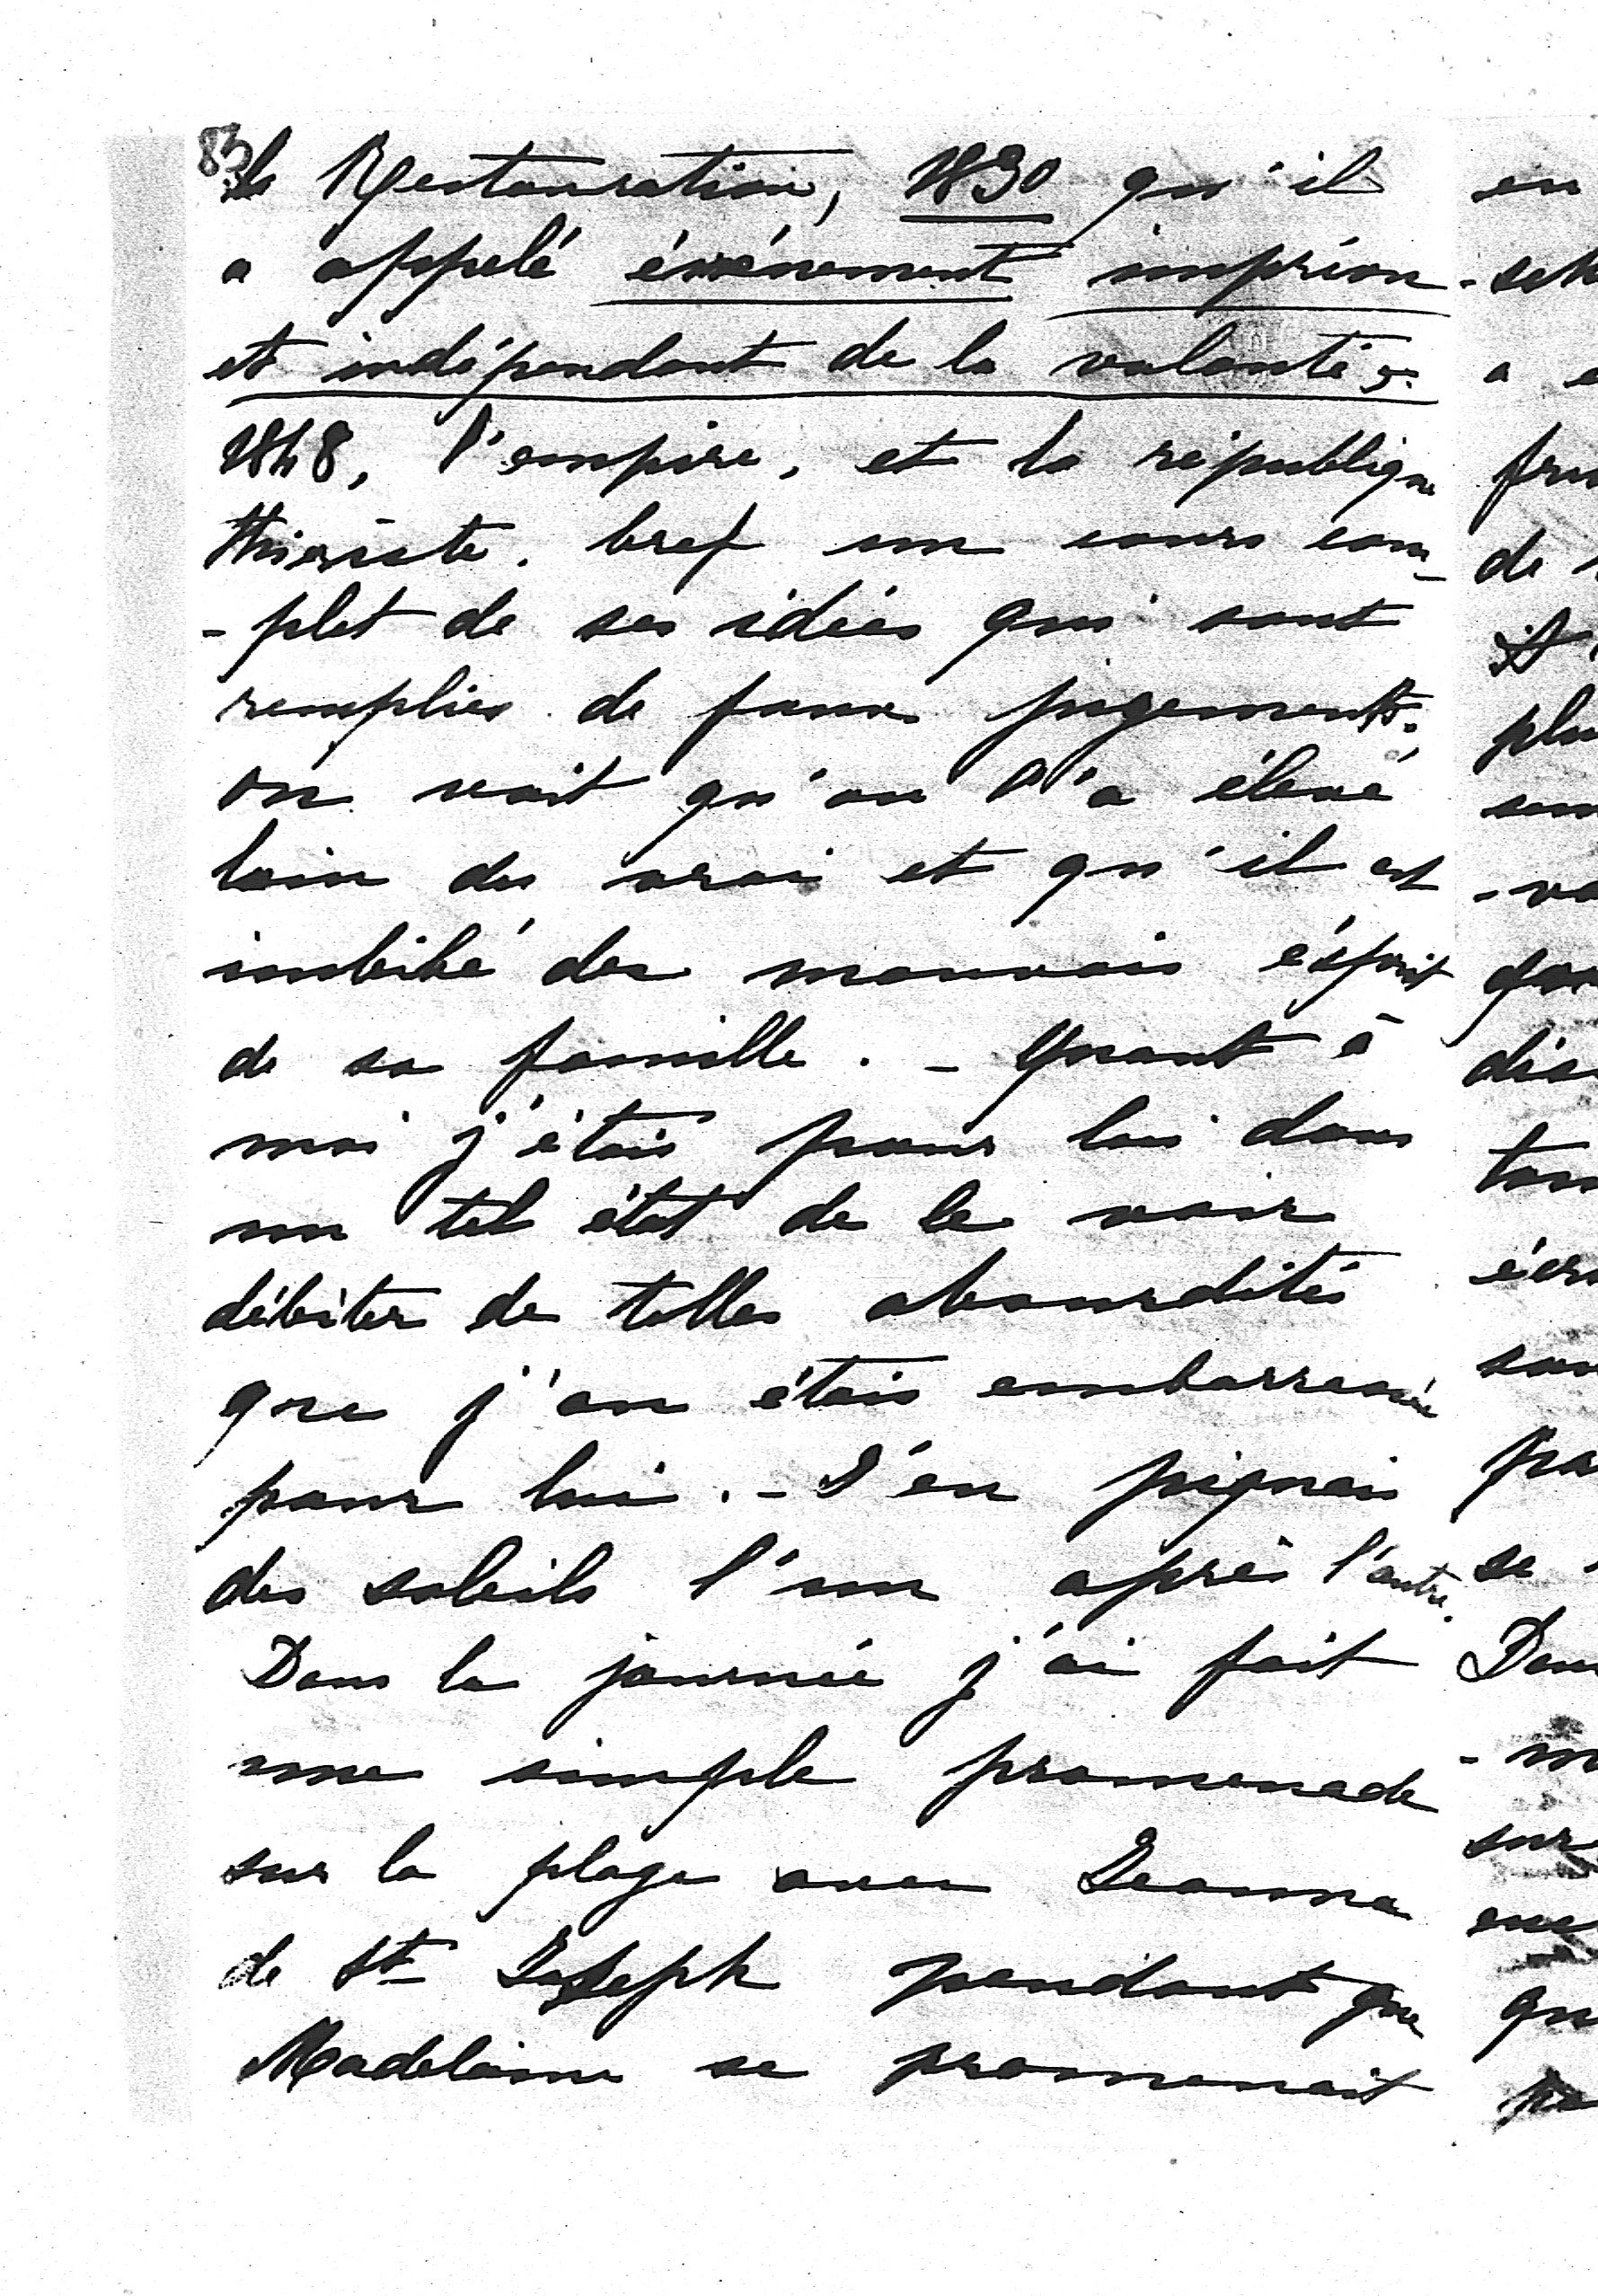 83
la Restauration, 1830 qu'il
a appelé événement imprévu
et indépendant de la volonté,
1848, l'empire, et la république
thieriste. bref un cours com-
-plet de ses idées qui sont
remplies de faux jugements;
on voit qu'on l'a élevé
loin du vrai et qu'il est
imbibé du mauvais esprit
de sa famille. - Quant à
moi j'étais pour lui dans
un tel état de le voir
débiter de telles absurdités
que j'en étais embarrassée
pour lui. - J'en piquais
des soleils l'un après l'autre.
Dans la journée j'ai fait
une simple promenade
sur la plage avec Jeanne
de St Joseph pendant que
Madeleine se promenait